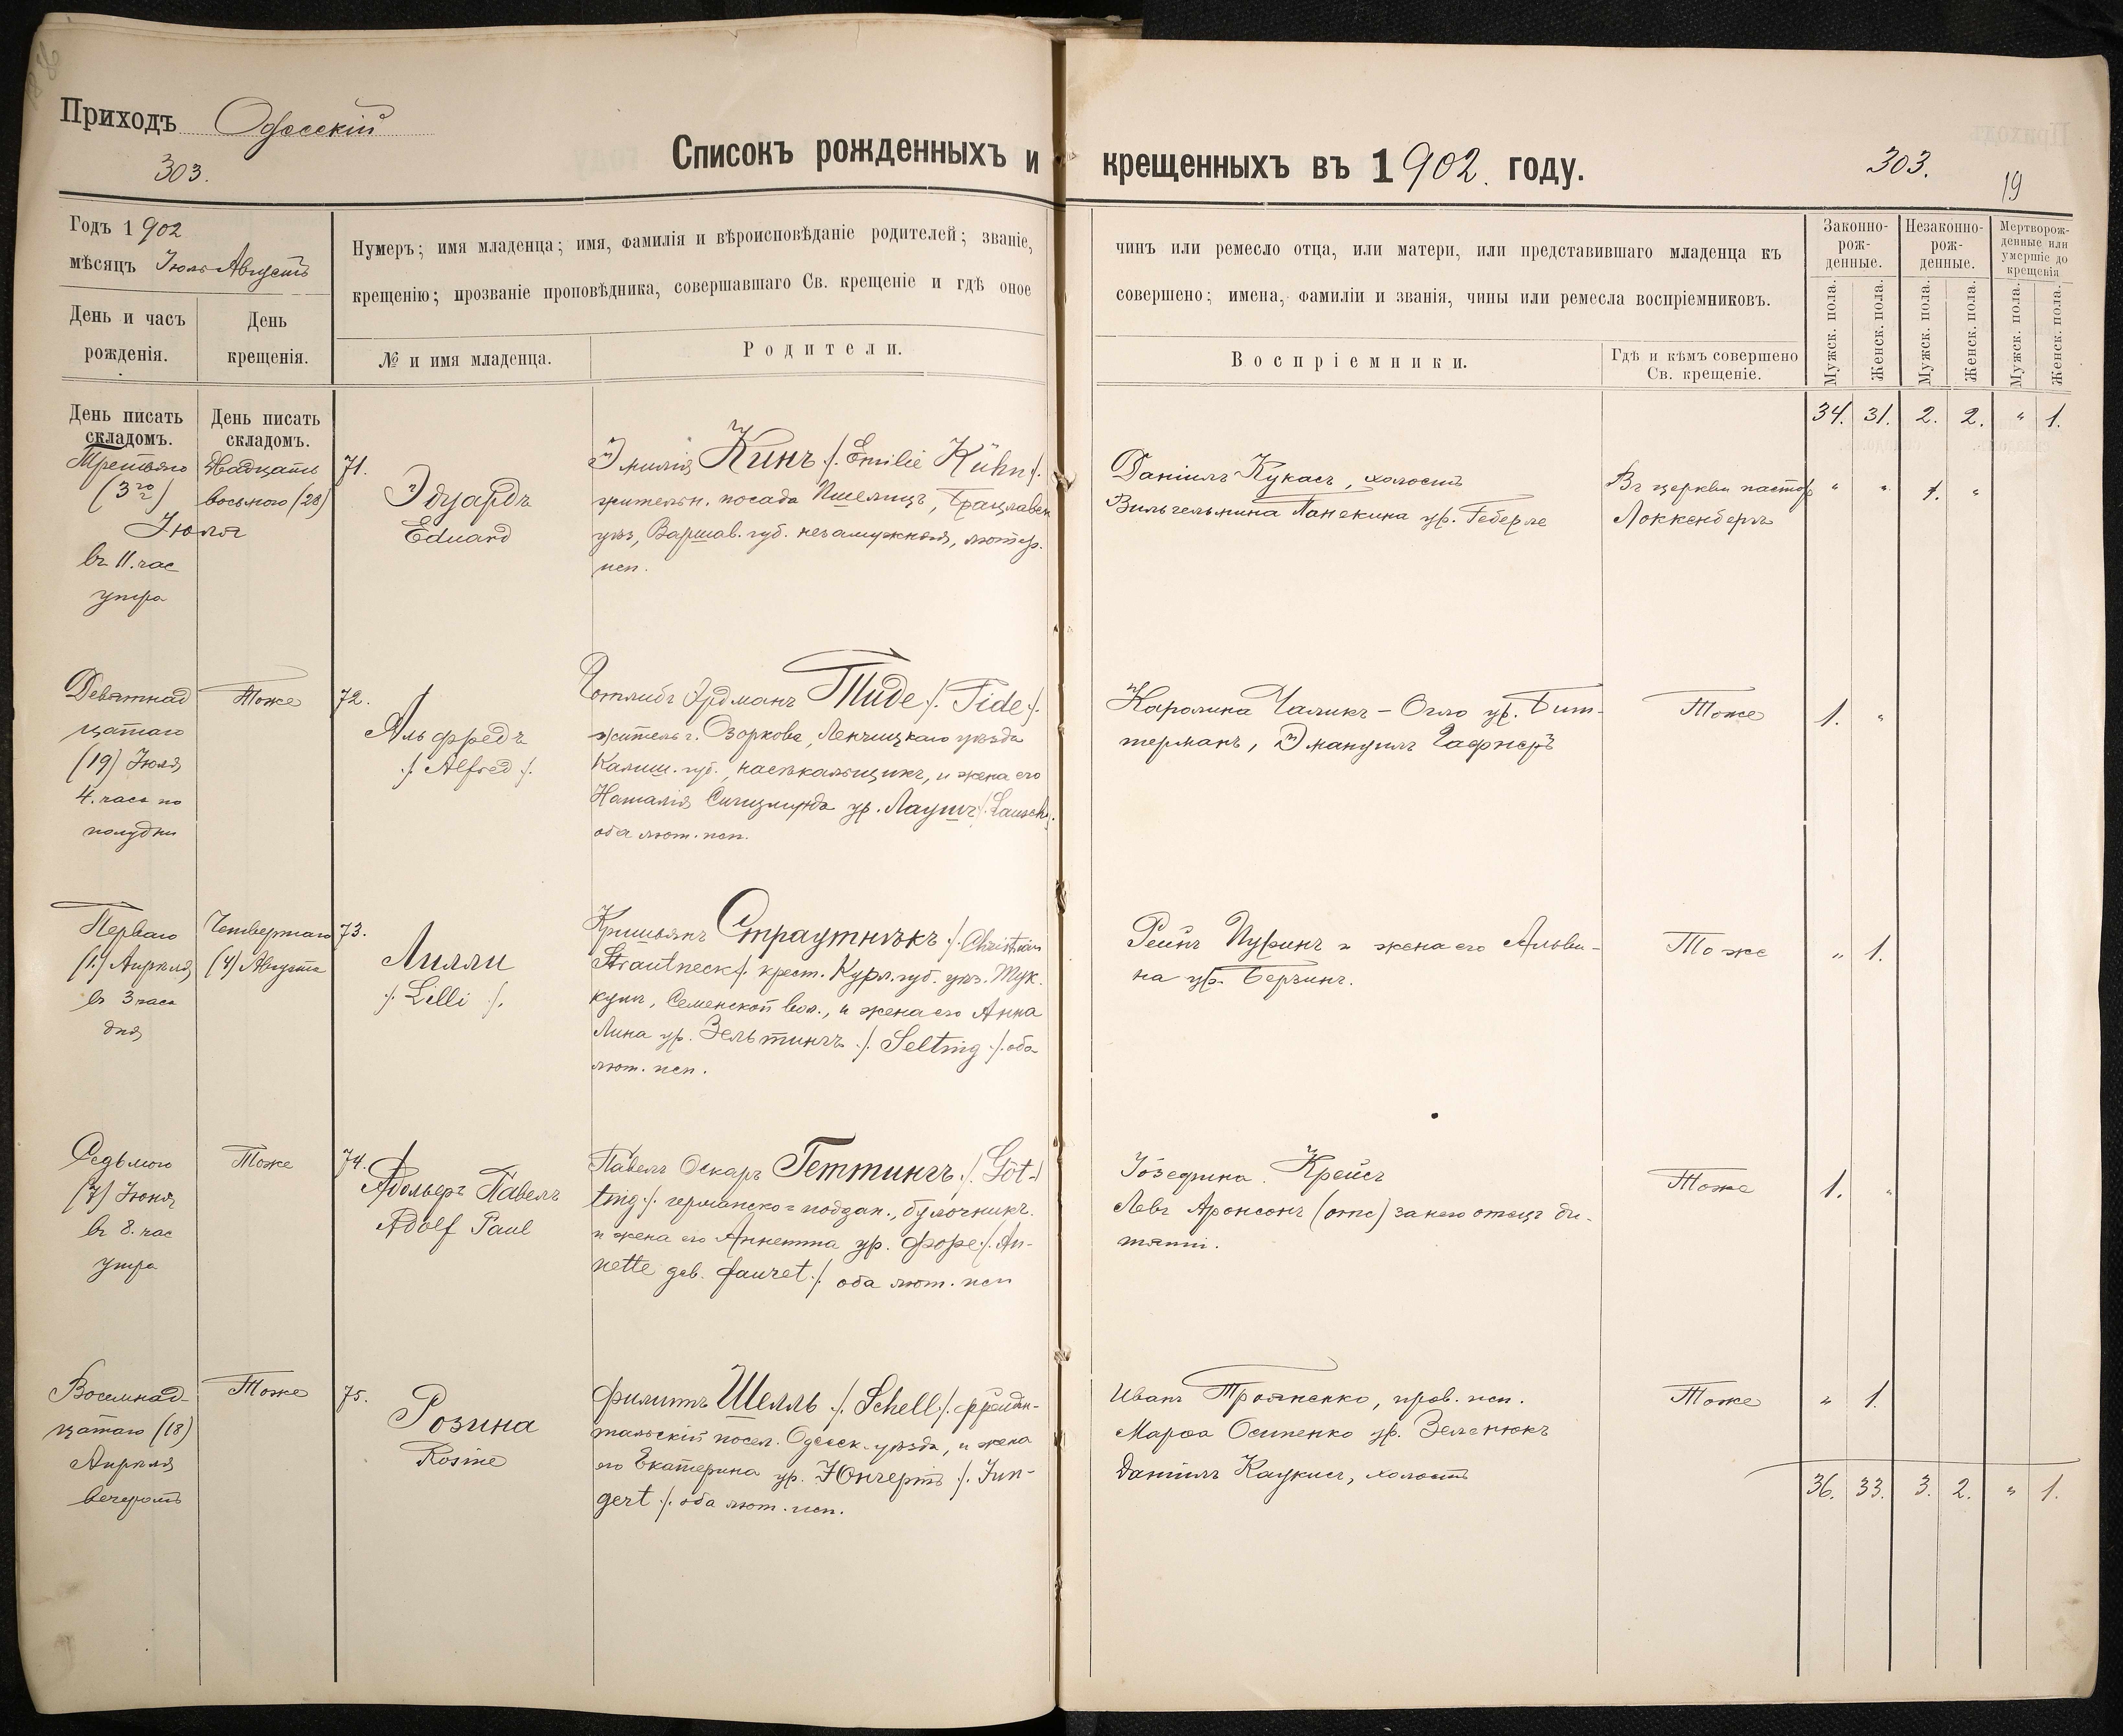 Приходъ Одесскій
303.
Списокъ рожденныхъ и крещенныхъ въ 1902. году.
303.
19
Годъ 1902
мѣсяцъ Іюль Августъ
День и часъ рожденія.
День крещенія.
Нумеръ; имя младенца; имя, фамилія и вѣроисповѣданіе родителей; званіе,
крещенію; прозваніе проповѣдника, совершавшаго Св. крещеніе и гдѣ оное
№ и имя младенца.
Родители.
чинъ или ремесло отца, или матери, или представившаго младенца къ
совершено; имена, фамиліи и званія, чины или ремесла воспріемниковъ.
Воспріемники.
Гдѣ и кѣмъ совершено
Св. крещеніе.
Законно-
рож-
денные.
Незаконно-
рож-
денные.
Мертворож-
денные или
умершіе до
крещенія
Мужск. пола.
Женск. пола.
Мужск. пола.
Женск. пола.
Мужск. пола.
Женск. пола.
День писать
складомъ.
День писать
складомъ.
34. 31. 2. 2. " 1.
Третьяго
(3го)
Іюля
въ 11. час
утра
Двадцать
восьмого (28)
71.
Эдуардъ
Eduard
Эмилія Кинъ /. Emilie Kühn /.
жительн. посада
уѣз, Варшав. губ. незамужняя, лютер.
исп.
Даніилъ Кукасъ, холостъ
Вильгельмина Панекина ур. Геберле
Въ церкви пастор
Локкенбергъ
" " 1. "
Девятнад
цатаго
(19) Іюля
4. часа по
полудни
Тоже
72.
Альфредъ
/. Alfred /.
Готлибъ Эрдманъ Тиде /. Tide /.
житель г. Озоркова, Ленчицкаго уѣзда
Калиш. губ., насѣкальщикъ, и жена его
Наталія Сигизмунда ур. Лаушъ /. Lausch /.
оба лют. исп.
Каролина Чаликъ-Огло ур. Бит-
терманъ, Эмануилъ Гафнеръ
Тоже
1. "
Перваго
(1.) Апрѣля
въ 3 часа
дня
Четвертаго
(4) Августа
73.
Лилли
/. Lilli /.
Кришьянъ Страутнѣкъ /. Christian
Strautneck /. крест. Курл. губ. уѣз. Тук.
кумъ, Семенской вол., и жена его Анна
Лина ур. Зельтингъ /. Selting /. оба
лют. исп.
Рейнъ Пуринъ и жена его Альви-
на ур. Берзинъ.
Тоже
" 1.
Седьмого
(7) Іюня
въ 8. час
утра
Тоже
74.
Адольфъ Павелъ
Adolf Paul
Павелъ Оскаръ Геттингъ /. Göt-
ting /. германско-поддан., булочникъ.
и жена его Аннетта ур. Форе /. An-
nette geb. Fauret /. оба лют. исп
Іозефина Крейсъ
Левъ Аронсонъ (отс) за него отецъ ди-
тяти.
Тоже
1. "
Восемнад-
цатаго (18)
Апрѣля
вечеромъ
Тоже
75.
Розина
Rosine
Филиппъ Шелль /. Schell /. Фрейден-
тальскій посел. Одесск. уѣзда, и жена
его Екатерина ур. Юнгертъ /. Jun-
gert /. оба лют. исп.
Иванъ Трояненко, прав. исп.
Марѳа Осипенко ур. Зеленюкъ
Даніилъ Каукисъ, холостъ
Тоже
" 1.
36. 33. 3. 2. " 1.